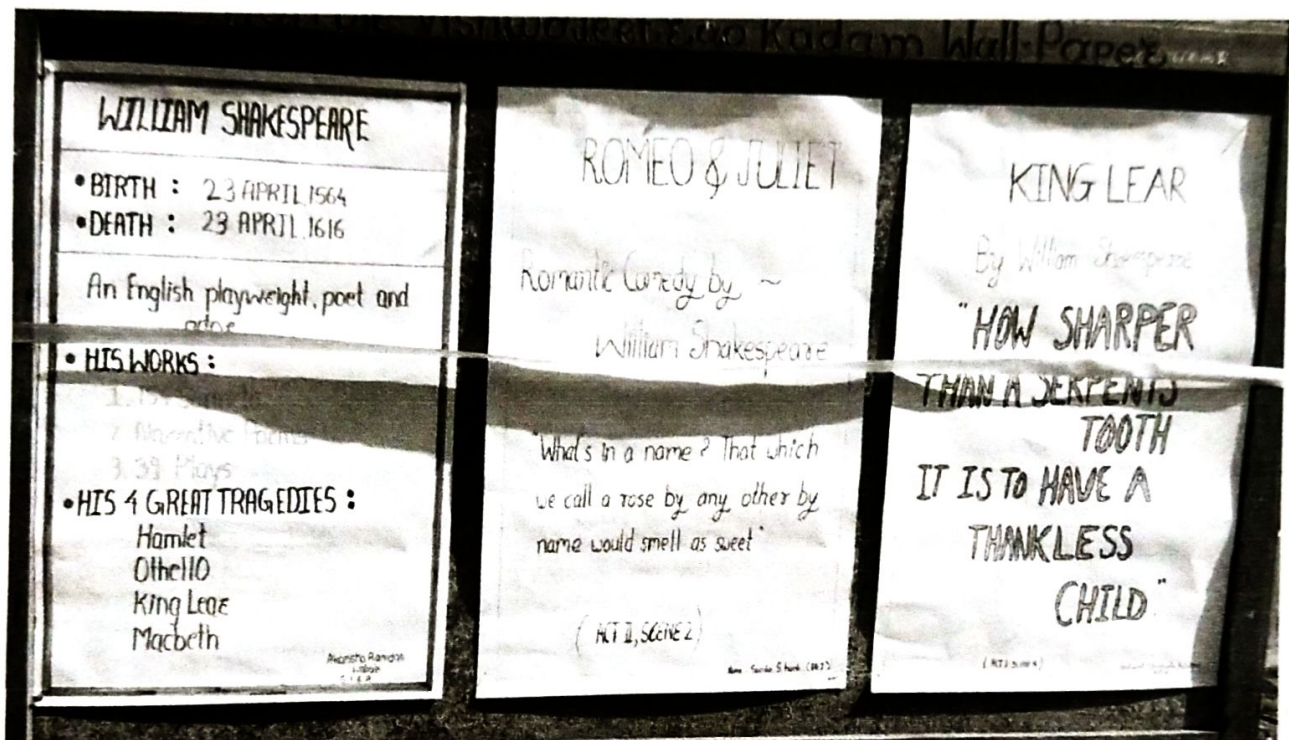 Kadam Wall-Paper
WILLIAM SHAKESPEARE
• BIRTH : 23 APRIL 1564
• DEATH : 23 APRIL 1616
An English playweight, poet and
• HIS WORKS :
2. Narrative Poems
3. 39 Plays
• HIS 4 GREAT TRAGEDIES :
Hamlet
Othello
King Lear
Macbeth
ROMEO & JULIET
Romantic Comedy by ~
William Shakespeare
"What's in a name? That which
we call a rose by any other by
name would smell as sweet"
(ACT II, SCENE 2)
KING LEAR
By William Shakespeare
"HOW SHARPER
THAN A SERPENTS
TOOTH
IT IS TO HAVE A
THANKLESS
CHILD"